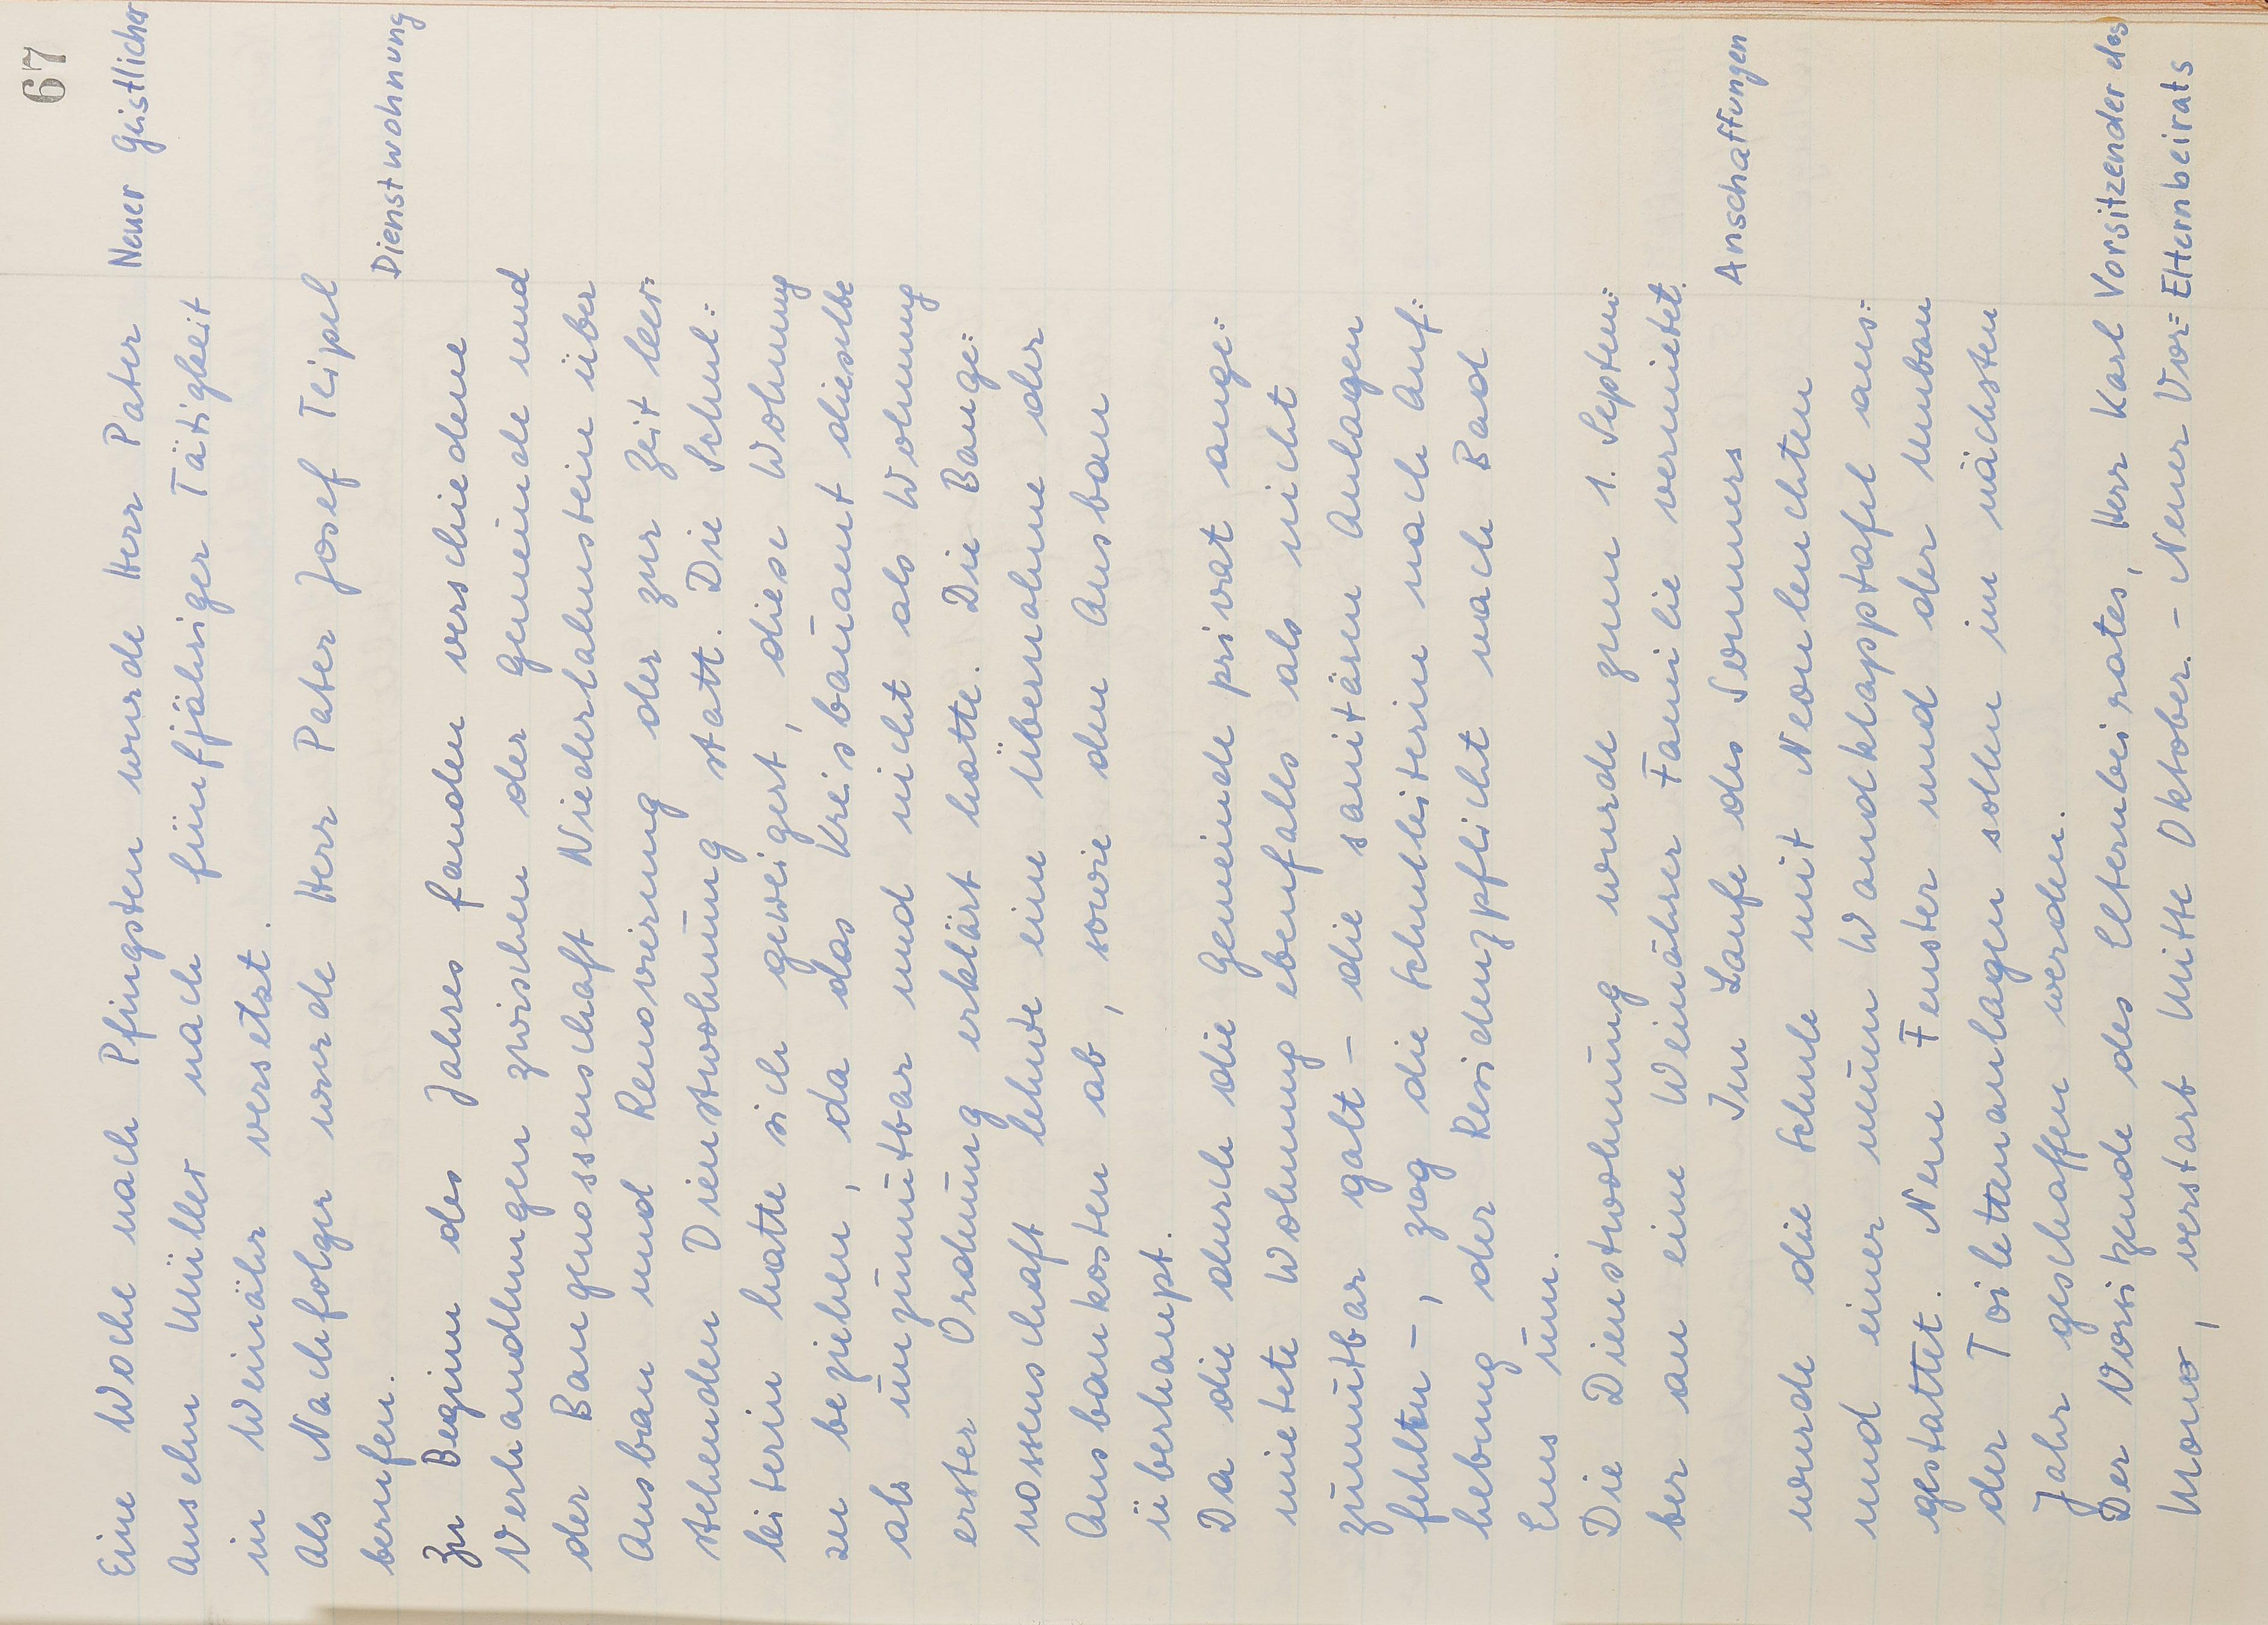 67
Eine Woche nach Pfingsten wurde Herr Pater
Neuer Geistlicher
Anselm Müller nach fünfjähriger Tätigkeit
in Weinähr versetzt.
Als Nachfolger wurde Herr Pater Josef Teipel
berufen.
Dienstwohnung
Zu Beginn des Jahres fanden verschiedene
Verhandlungen zwischen der Gemeinde und
der Baugenossenschaft Niederlahnstein über
Ausbau und Renovierung der zur Zeit leer=
stehenden Dienstwohnung statt. Die Schul=
leiterin hatte sich geweigert, diese Wohnung
zu beziehen, da das Kreisbauamt dieselbe
als unzumutbar und nicht als Wohnung
erster Ordnung erklärt hatte. Die Bauge=
nossenschaft lehnte eine Übernahme der
Ausbaukosten ab, sowie den Ausbau
überhaupt.
Da die durch die Gemeinde privat ange=
mietete Wohnung ebenfalls als nicht
zumutbar galt – die sanitären Anlagen
fehlten –, zog die Schulleiterin nach Auf=
hebung der Residenzpflicht nach Bad
Ems um.
Die Dienstwohnung wurde zum 1. Septem=
ber an eine Weinährer Familie vermietet.
Im Laufe des Sommers
Anschaffungen
wurde die Schule mit Neonleuchten
und einer neuen Wandklapptafel aus=
gestattet. Neue Fenster und der Umbau
der Toilettenanlagen sollen im nächsten
Jahr geschaffen werden.
Der Vorsitzende des Elternbeirates, Herr Karl
Vorsitzender des
verstarb Mitte Oktober. – Neuer Vor=
Elternbeirats